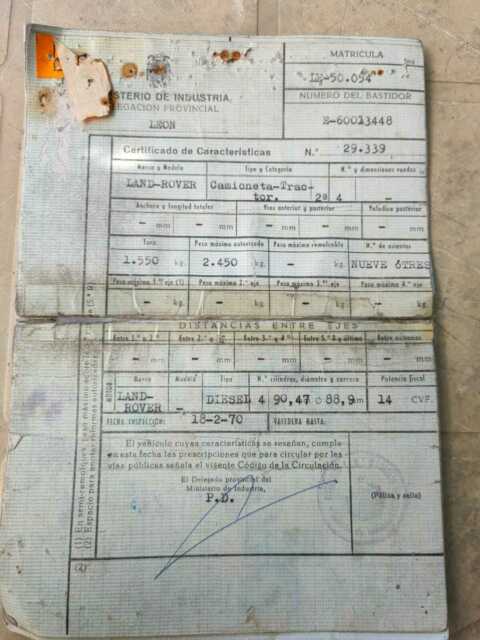 MATRICULA
LE-50.054
MINISTERIO DE INDUSTRIA
DELEGACION PROVINCIAL
NUMERO DEL BASTIDOR
LEON
E-60013448
Certificado de Características N.° 29.339
Marca y Modelo Tipo y Categoría N.° y dimensiones ruedas
LAND-ROVER Camioneta-Trac-
tor. 2ª 4 -
Anchura y longitud totales Vías anterior y posterior Voladizo posterior
- mm - mm - mm - mm - mm
Tara Peso máximo autorizado Peso máximo remolcable N.° de asientos
1.550 kg. 2.450 kg. - kg. NUEVE óTRES
Peso máximo 1.er eje (1) Peso máximo 2.° eje Peso máximo 3.er eje Peso máximo 4.° eje
- kg. - kg. - kg. - kg.
DISTANCIAS ENTRE EJES
Entre 1.° y 2.° Entre 2.° y 3.° Entre 3.° y 4.° Entre 5.° y último Entre extremos
- mm - mm - mm - mm - mm
MOTOR
Marca Modelo Tipo N.° cilindros, diámetro y carrera Potencia fiscal
LAND-
ROVER - DIESEL 4 90,47 o 88,9 m 14 CVF.
FECHA INSPECCION: 18-2-70 VALEDERA HASTA:
El vehículo cuyas características se reseñan, cumple
en esta fecha las prescripciones que para circular por las
vías públicas señala el vigente Código de la Circulación.
El Delegado provincial del
Ministerio de Industria,
P.D.
(Póliza y sello)
(1) En semi-remolques, peso máximo
(2) Espacio para anotar reformas autorizadas
(2)